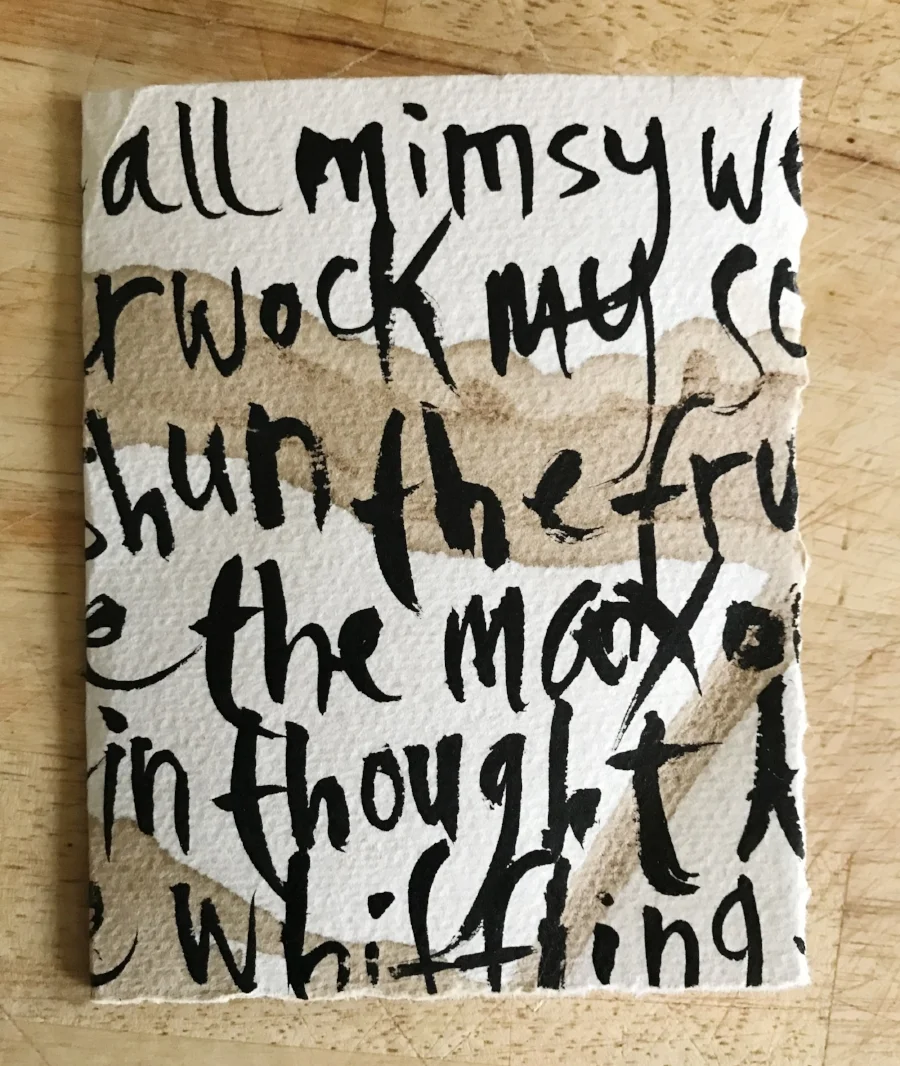 all mimsy we
rwock my so
shun the fru
e the manxo
in thought h
e whiffling